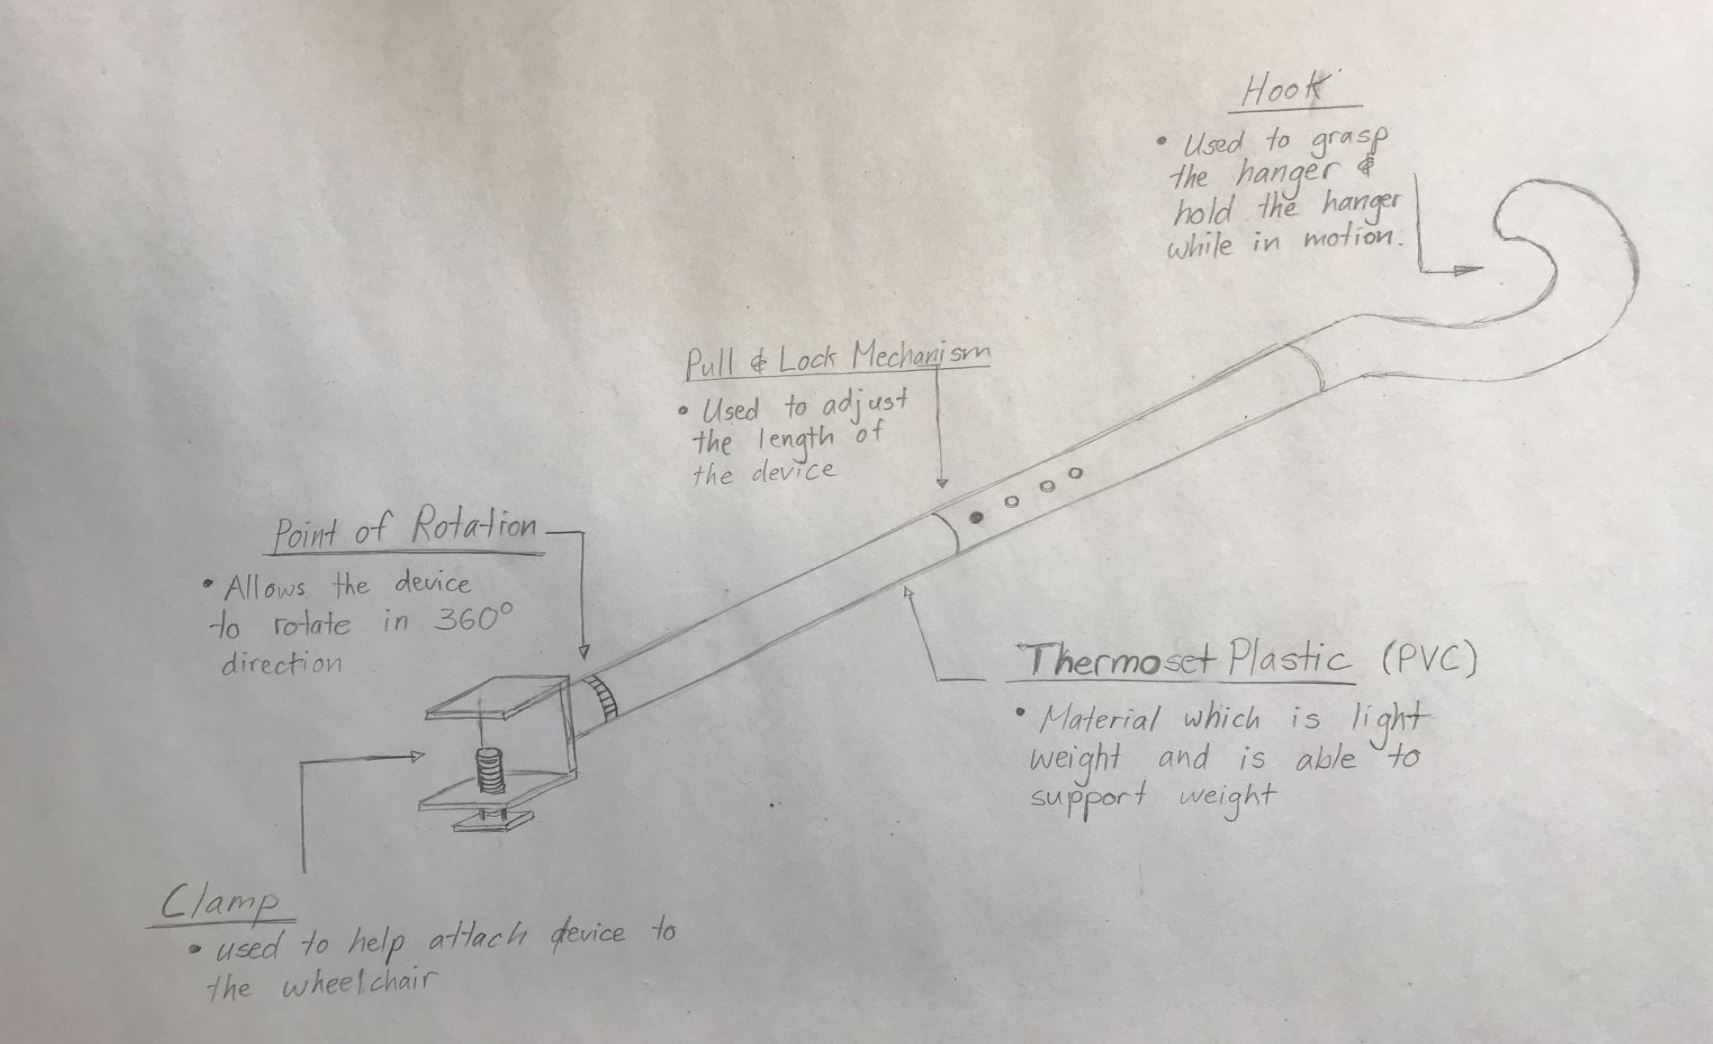 Hook
• Used to grasp
the hanger &
hold the hanger
while in motion.
Pull & Lock Mechanism
• Used to adjust
the length of
the device
Point of Rotation
• Allows the device
to rotate in 360°
direction
Thermoset Plastic (PVC)
• Material which is light
weight and is able to
support weight
Clamp
• used to help attach device to
the wheelchair